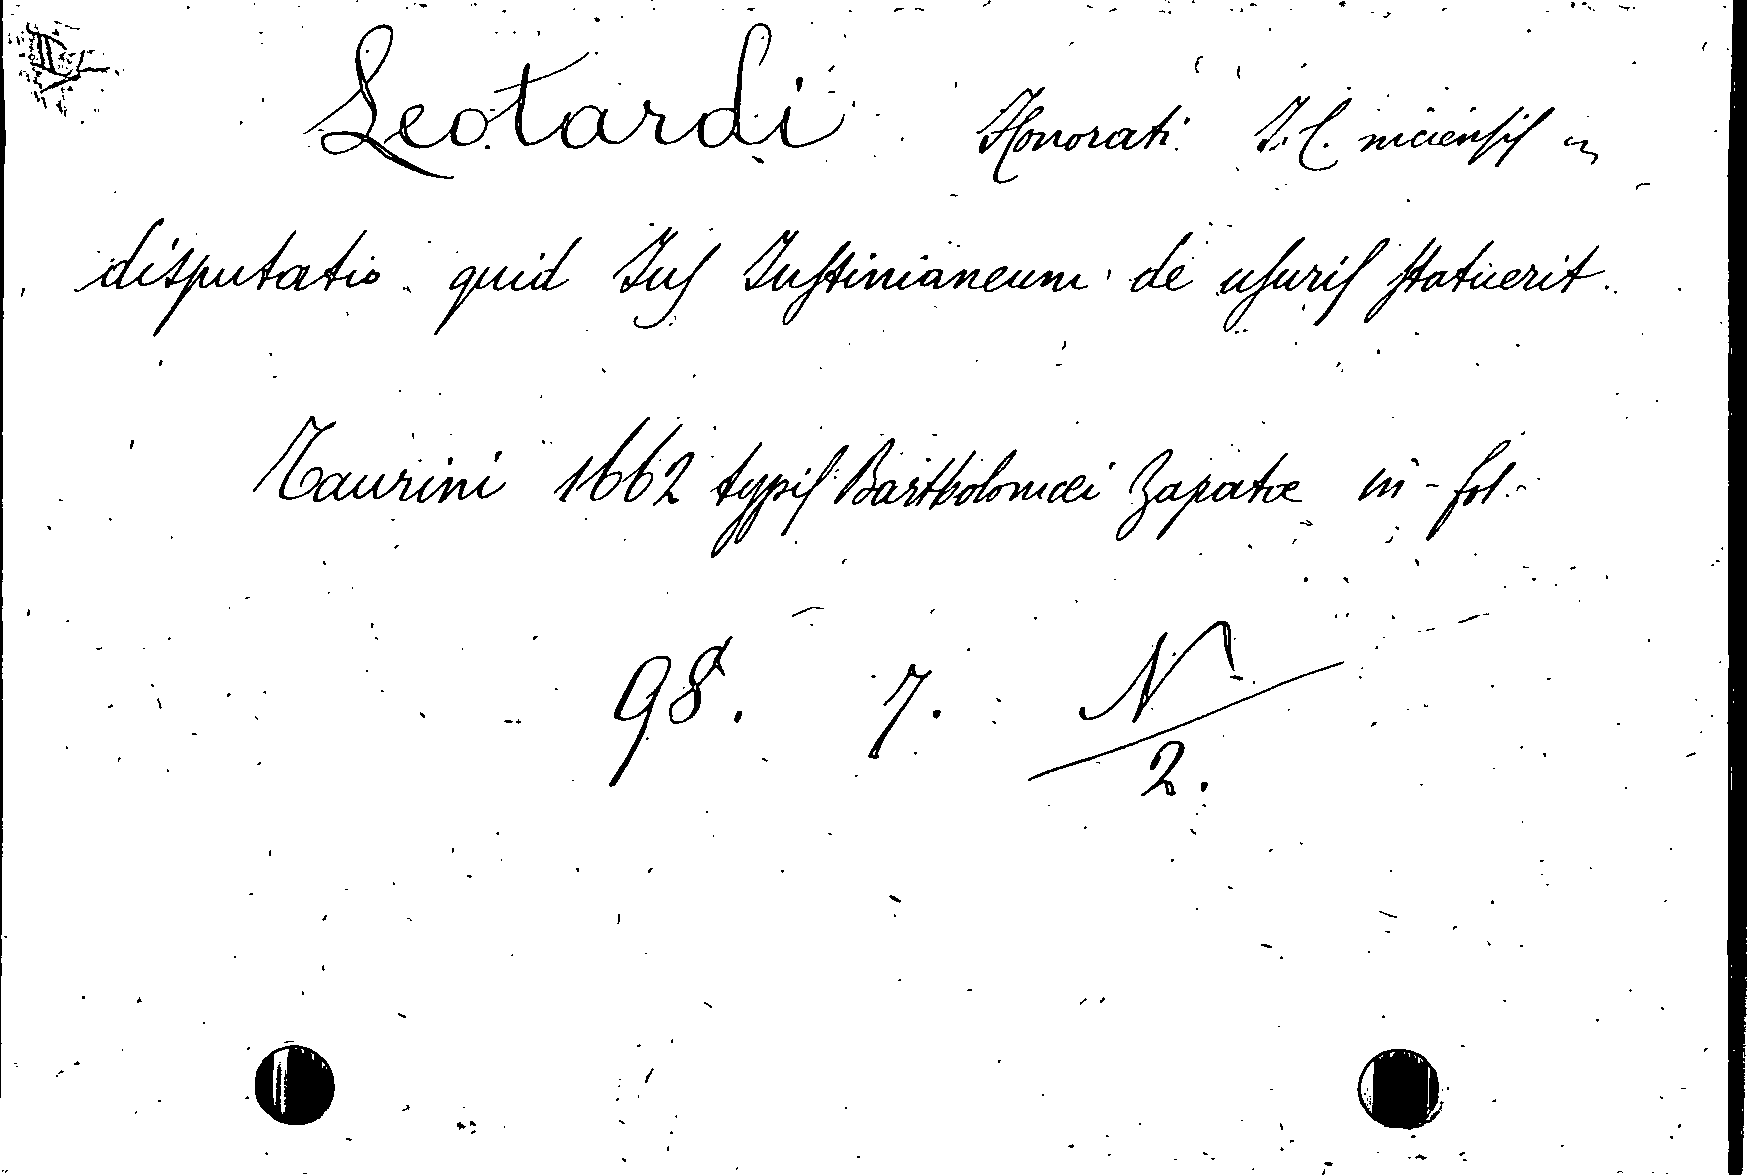 Leotardi Honorati I. C. niciensis in
disputatio quid Jus Justinianeum de usuris statuerit.
Taurini 1662 typis Bartholomæi Zapatæ in-fol.
98. 7. N/2.